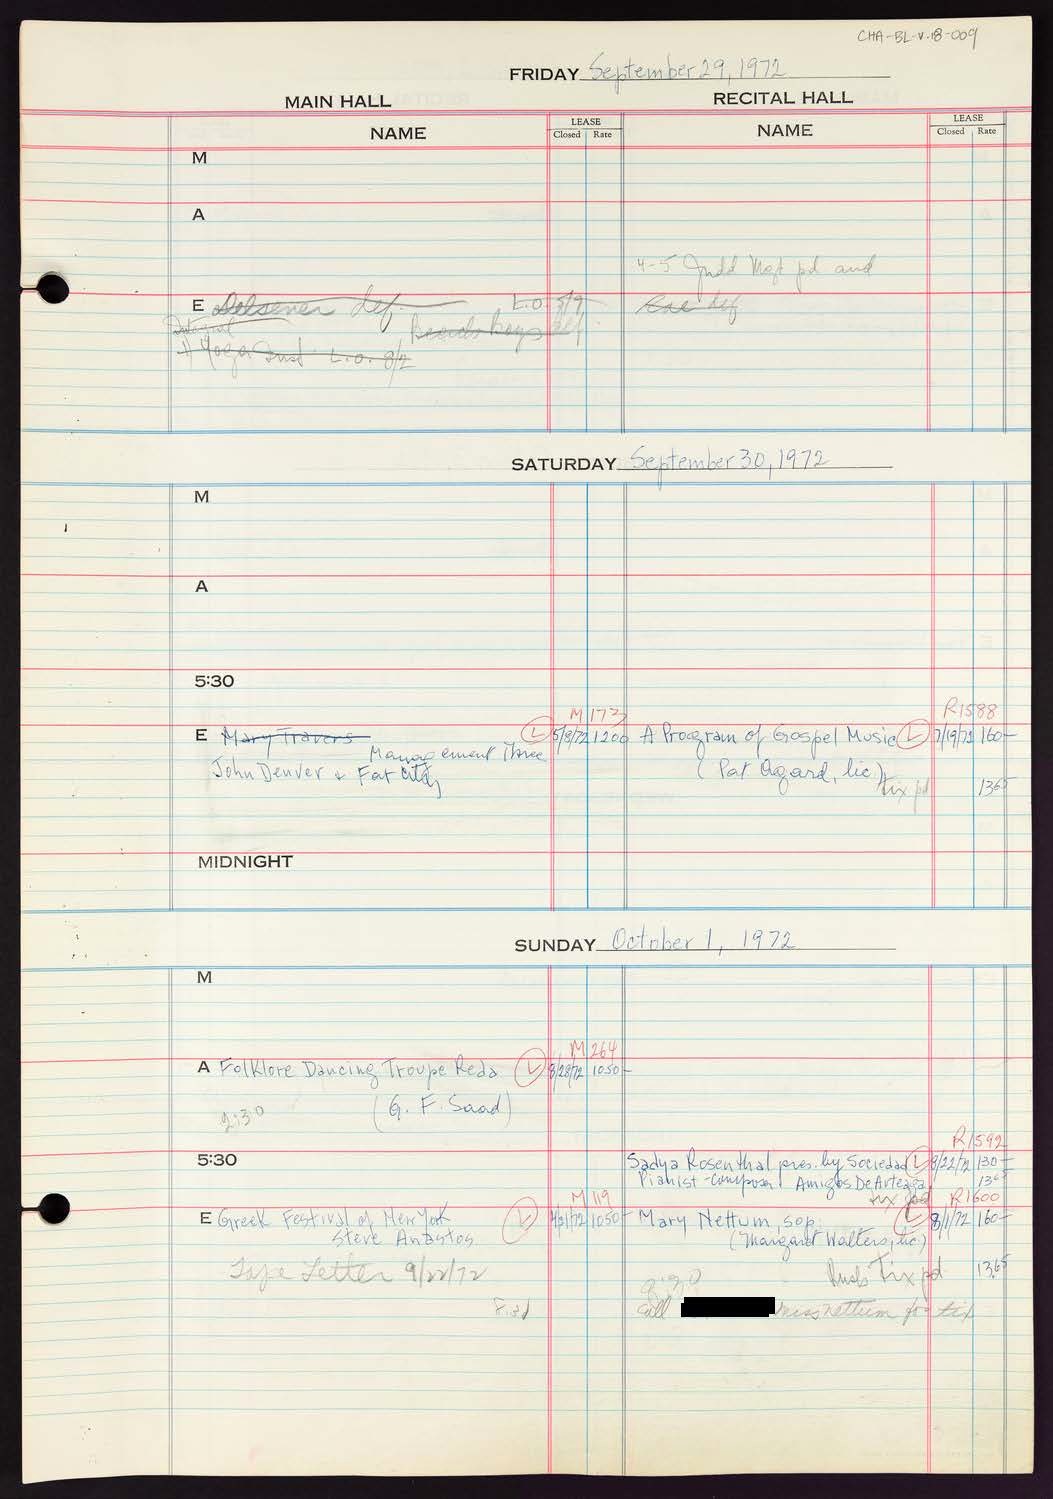 CHA-BL-v.18-009
FRIDAY September 29, 1972
MAIN HALL
RECITAL HALL
NAME
LEASE
Closed Rate
NAME
LEASE
Closed Rate
M
A
4-5 Judd Mgt pd and
E Delsener def. L.O. 5/9
Rae def
Integral Beach Boys def
Yoga Inst L.O. 8/2
SATURDAY September 30, 1972
M
A
5:30
M 173
R1588
E Mary Travers L 5/8/72 1200
A Program of Gospel Music L 7/19/72 160-
Management Three
John Denver & Fat City
(Pat Agard, lic)
tix pd 1365
MIDNIGHT
SUNDAY October 1, 1972
M
M 264
A Folklore Dancing Troupe Reda L 8/28/72 1050-
(G. F. Saad)
2:30
R1592
5:30
Sadya Rosenthal pres. by Sociedad L 8/22/72 130-
Pianist-Composer Amigos De Arteaga 1365
tix pd
M 119
R1600
E Greek Festival of New York L 4/21/72 1050-
Mary Nettum, sop. L 8/1/72 160-
Steve Anastos
(Margaret Walters, lic)
Tape Letter 9/22/72
Rush Tix pd 1365
8:30
Call Miss Nettum for tix